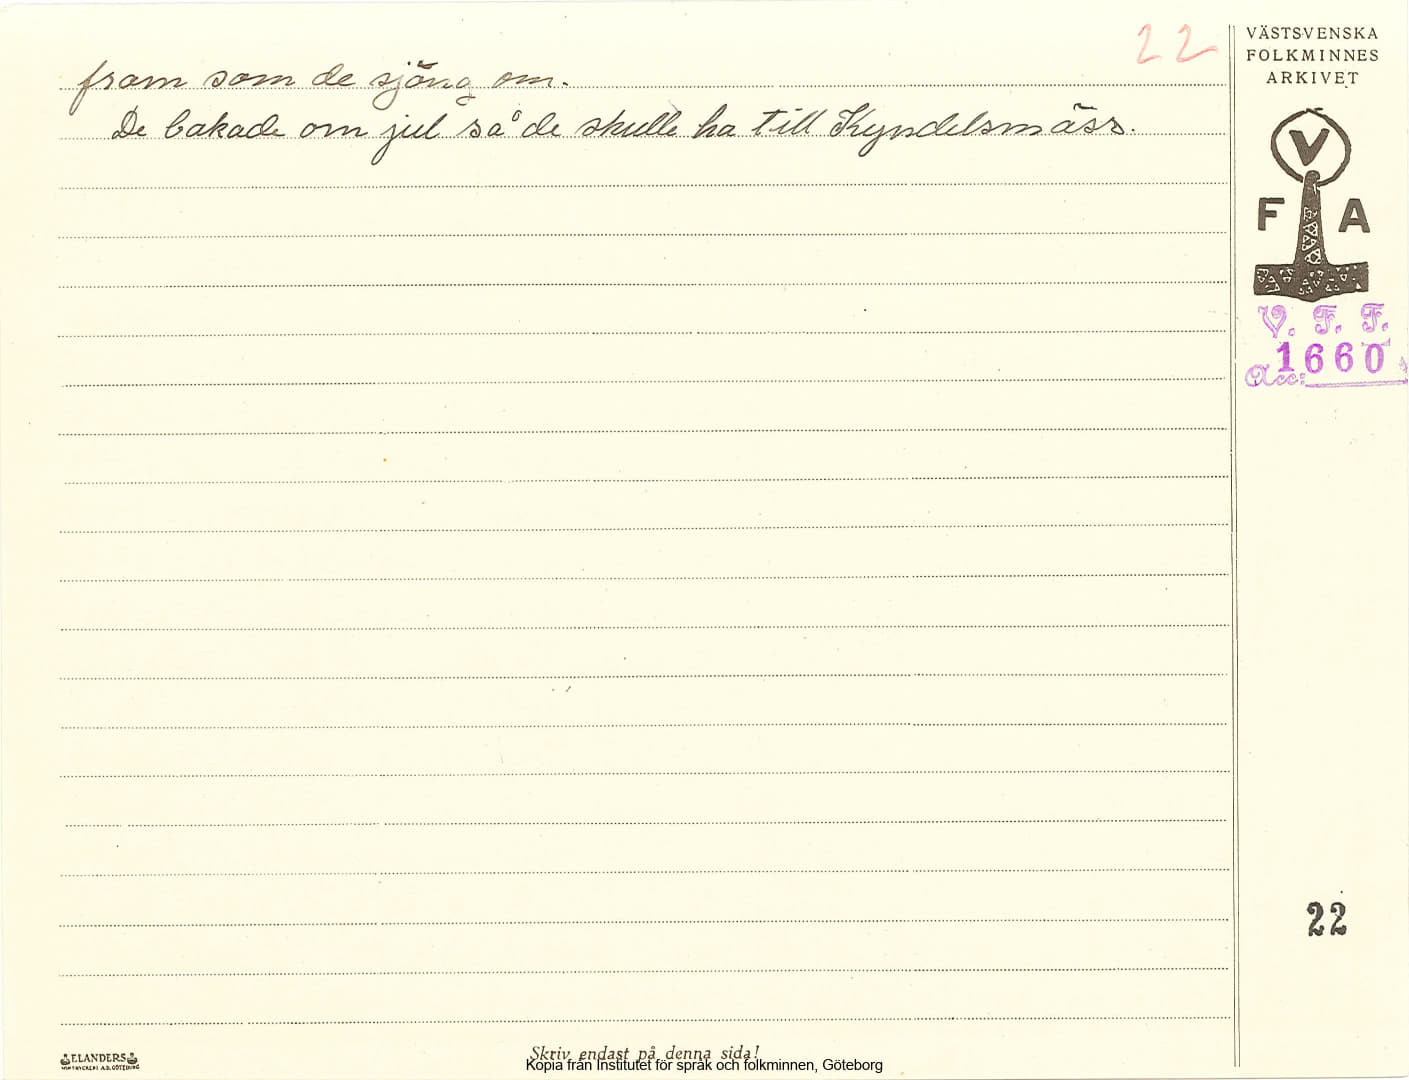 22
fram som de sjöng om.
De bakade om jul så de skulle ha till Kyndelsmäss.
VÄSTSVENSKA
FOLKMINNES
ARKIVET
V
F A
V. F. F.
1660
Acc:
22
ELANDERS
Skriv endast på denna sida!
Kopia från Institutet för språk och folkminnen, Göteborg